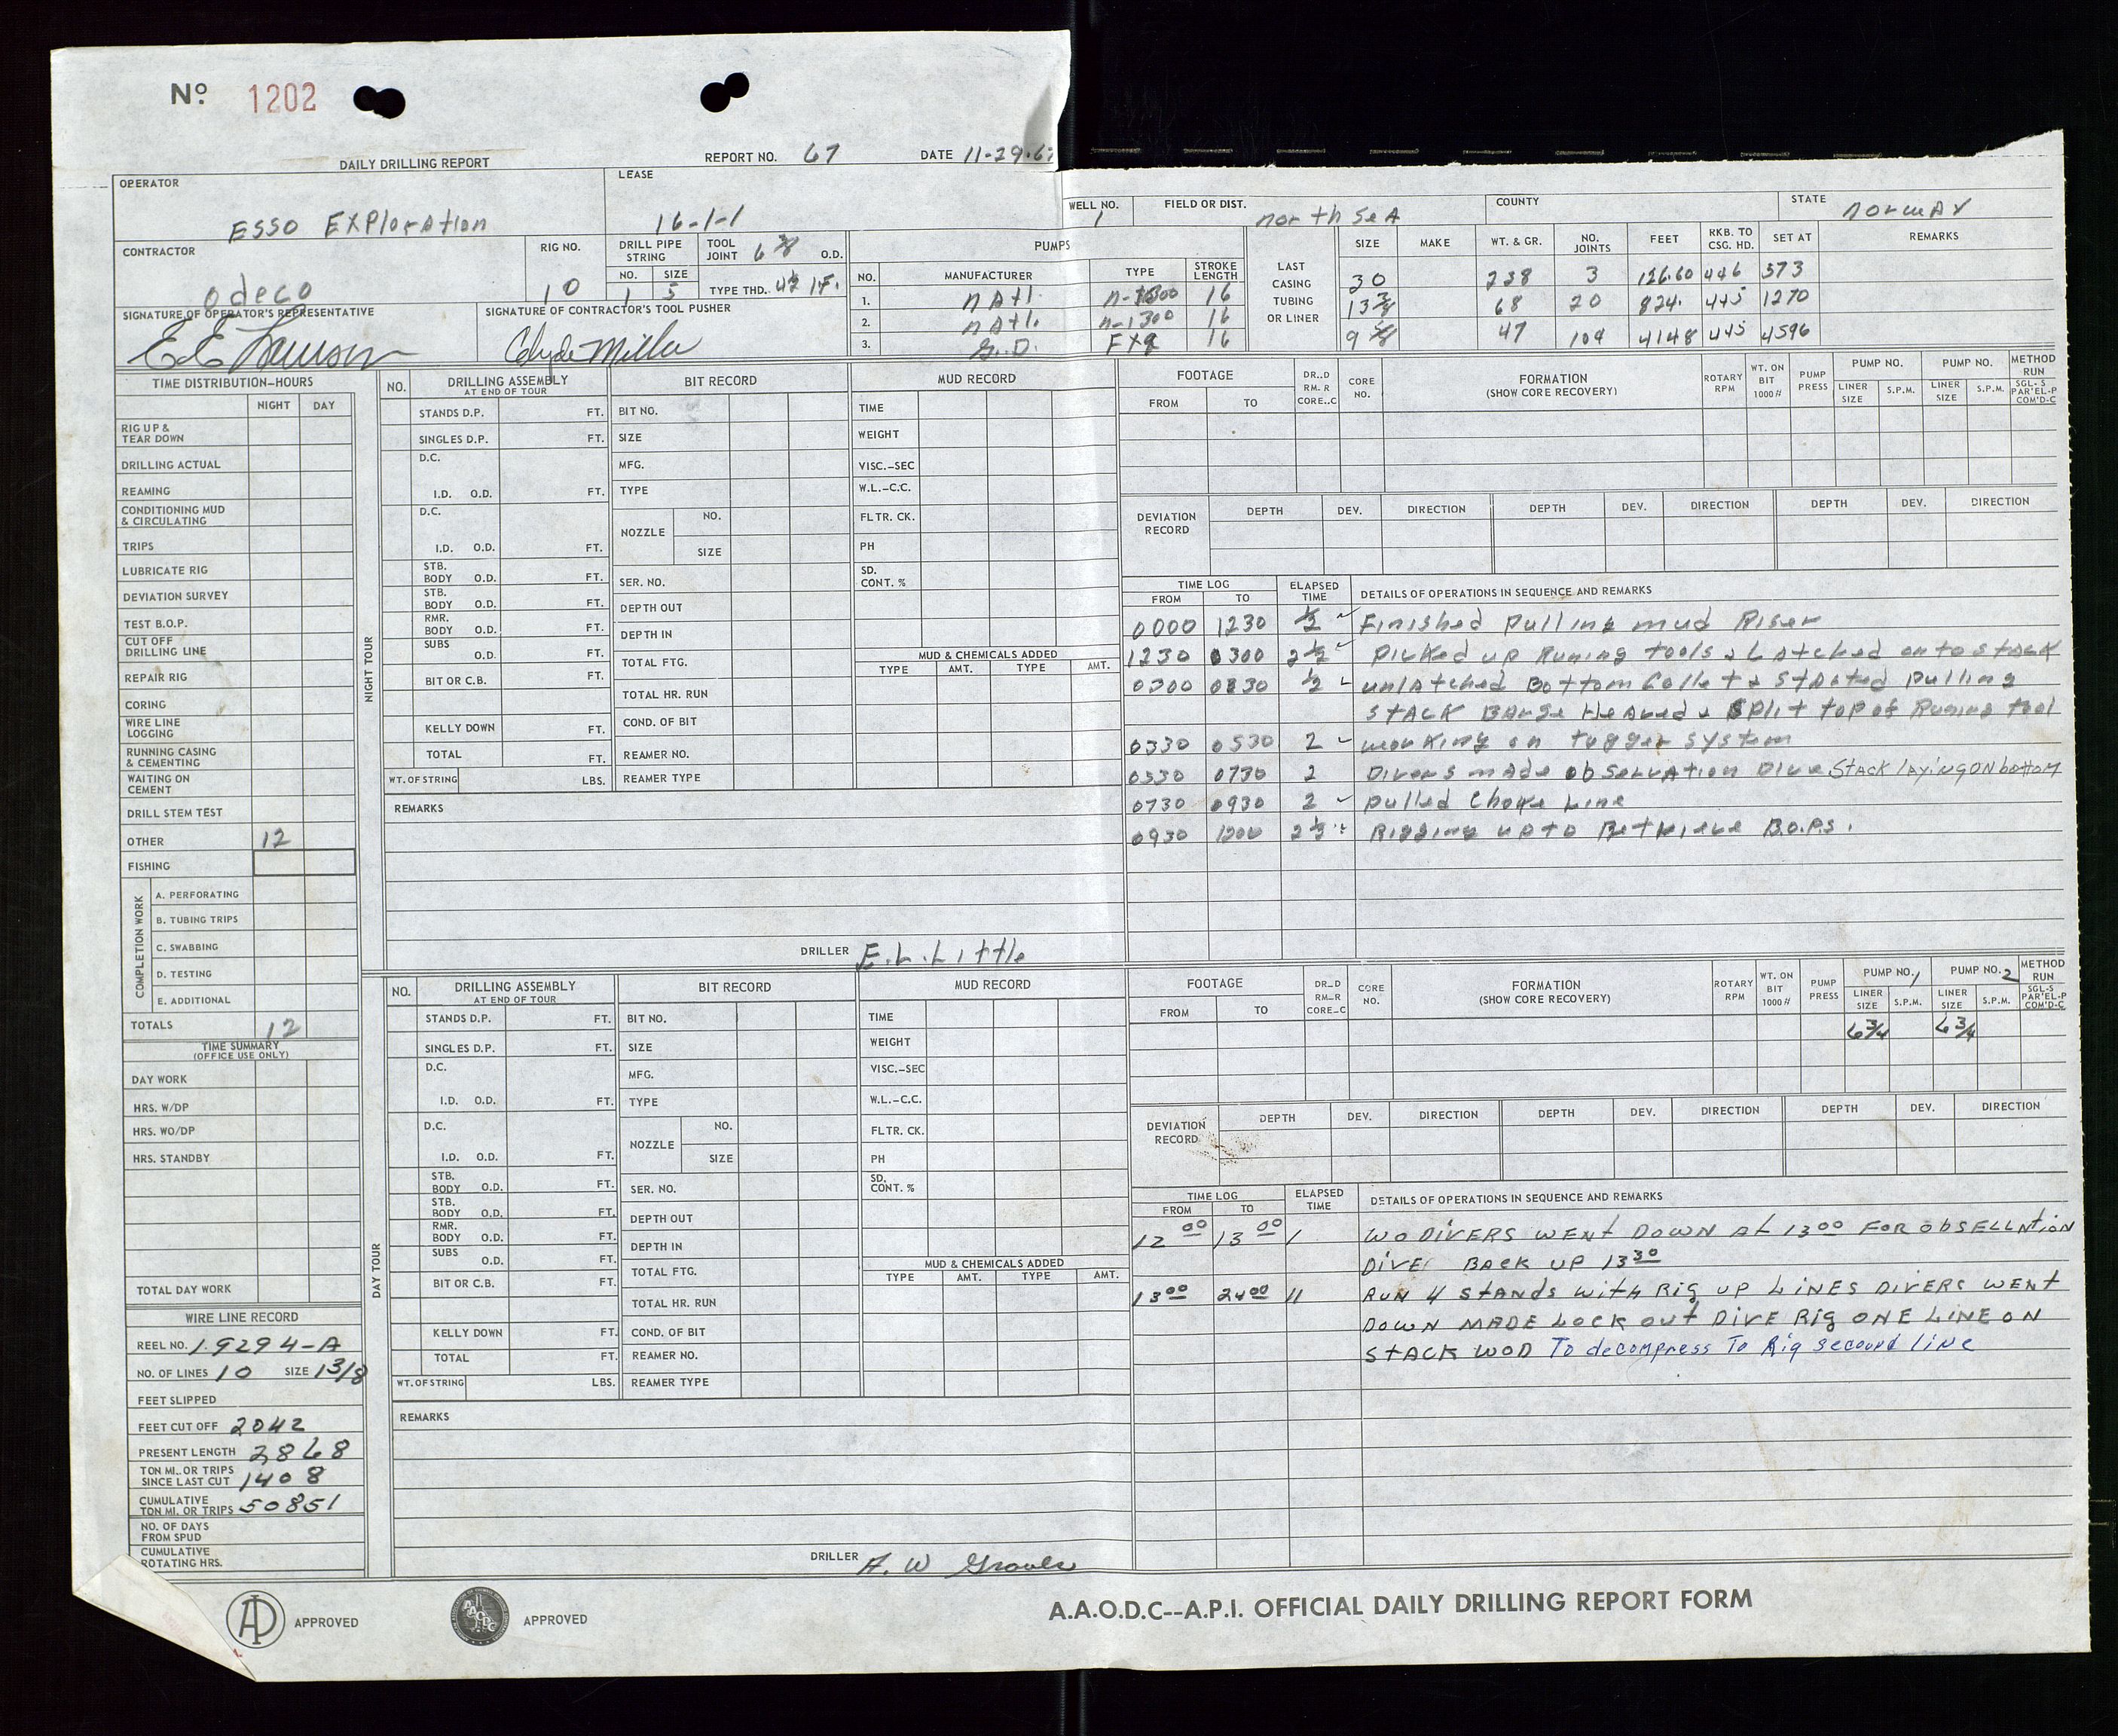 No. 1202
DAILY DRILLING REPORT REPORT NO. 67 DATE 11-29-6
OPERATOR ESSO EXPloration
LEASE 16-1-1
WELL NO. 1 FIELD OR DIST. North SeA COUNTY STATE NorwAY
CONTRACTOR Odeco
RIG NO. 10
DRILL PIPE STRING NO. 1 SIZE 5
TOOL JOINT 6 3/8 O.D.
TYPE THD. 4 1/2 I.F.
SIGNATURE OF OPERATOR'S REPRESENTATIVE
SIGNATURE OF CONTRACTOR'S TOOL PUSHER Clyde Miller
PUMPS
NO. MANUFACTURER TYPE STROKE LENGTH
1. NAtl. N-1300 16
2. NAtl. N-1300 16
3. G.D. FXQ 16
LAST CASING TUBING OR LINER
SIZE MAKE WT. & GR. NO. JOINTS FEET RKB. TO CSG. HD. SET AT REMARKS
30 238 3 126.60 446 573
13 3/8 68 20 824. 445 1270
9 5/8 47 104 4148 445 4596
TIME DISTRIBUTION-HOURS
NIGHT DAY
RIG UP & TEAR DOWN
DRILLING ACTUAL
REAMING
CONDITIONING MUD & CIRCULATING
TRIPS
LUBRICATE RIG
DEVIATION SURVEY
TEST B.O.P.
CUT OFF DRILLING LINE
REPAIR RIG
CORING
WIRE LINE LOGGING
RUNNING CASING & CEMENTING
WAITING ON CEMENT
DRILL STEM TEST
OTHER 12
FISHING
COMPLETION WORK
A. PERFORATING
B. TUBING TRIPS
C. SWABBING
D. TESTING
E. ADDITIONAL
TOTALS 12
TIME SUMMARY
(OFFICE USE ONLY)
DAY WORK
HRS. W/DP
HRS. WO/DP
HRS. STANDBY
TOTAL DAY WORK
WIRE LINE RECORD
REEL NO. 19294-A
NO. OF LINES 10 SIZE 1 3/8
FEET SLIPPED
FEET CUT OFF 2042
PRESENT LENGTH 2868
TON MI. OR TRIPS SINCE LAST CUT 1408
CUMULATIVE TON MI. OR TRIPS 50851
NO. OF DAYS FROM SPUD
CUMULATIVE ROTATING HRS.
NIGHT TOUR
NO. DRILLING ASSEMBLY AT END OF TOUR
STANDS D.P. FT.
SINGLES D.P. FT.
D.C.
I.D. O.D. FT.
D.C.
I.D. O.D. FT.
STB. BODY O.D. FT.
STB. BODY O.D. FT.
RMR. BODY O.D. FT.
SUBS O.D. FT.
BIT OR C.B. FT.
KELLY DOWN FT.
TOTAL FT.
WT. OF STRING LBS.
BIT RECORD
BIT NO.
SIZE
MFG.
TYPE
NOZZLE NO.
SIZE
SER. NO.
DEPTH OUT
DEPTH IN
TOTAL FTG.
TOTAL HR. RUN
COND. OF BIT
REAMER NO.
REAMER TYPE
MUD RECORD
TIME
WEIGHT
VISC.-SEC
W.L.-C.C.
FLTR. CK.
PH
SD. CONT. %
MUD & CHEMICALS ADDED
TYPE AMT. TYPE AMT.
REMARKS
DRILLER E.L. Little
FOOTAGE
FROM TO
DR..D RM.R CORE..C
CORE NO.
FORMATION (SHOW CORE RECOVERY)
ROTARY RPM
WT. ON BIT 1000 #
PUMP PRESS
PUMP NO. LINER SIZE S.P.M.
PUMP NO. LINER SIZE S.P.M.
METHOD RUN SGL-S PAR'EL-P COM'D-C
DEVIATION RECORD
DEPTH DEV. DIRECTION DEPTH DEV. DIRECTION DEPTH DEV. DIRECTION
TIME LOG FROM TO ELAPSED TIME DETAILS OF OPERATIONS IN SEQUENCE AND REMARKS
0000 1230 1/2 Finished pulling mud Riser
1230 0300 2 1/2 Picked up Runing tools & LAtched onto stAck
0300 0330 1/2 unlAtched Bottom Collet & StArted pulling
StAck BArge HeAved & Split top of Runing tool
0330 0530 2 working on tugger system
0530 0730 2 Divers mAde observAtion Dive Stack laying ON bottom
0730 0930 2 pulled Choke Line
0930 1200 2 1/2 Rigging up to Retrieve B.O.P.S.
DAY TOUR
NO. DRILLING ASSEMBLY AT END OF TOUR
STANDS D.P. FT.
SINGLES D.P. FT.
D.C.
I.D. O.D. FT.
D.C.
I.D. O.D. FT.
STB. BODY O.D. FT.
STB. BODY O.D. FT.
RMR. BODY O.D. FT.
SUBS O.D. FT.
BIT OR C.B. FT.
KELLY DOWN FT.
TOTAL FT.
WT. OF STRING LBS.
BIT RECORD
BIT NO.
SIZE
MFG.
TYPE
NOZZLE NO.
SIZE
SER. NO.
DEPTH OUT
DEPTH IN
TOTAL FTG.
TOTAL HR. RUN
COND. OF BIT
REAMER NO.
REAMER TYPE
MUD RECORD
TIME
WEIGHT
VISC.-SEC
W.L.-C.C.
FLTR. CK.
PH
SD. CONT. %
MUD & CHEMICALS ADDED
TYPE AMT. TYPE AMT.
REMARKS
DRILLER A. W
FOOTAGE
FROM TO
DR..D RM--R CORE-C
CORE NO.
FORMATION (SHOW CORE RECOVERY)
ROTARY RPM
WT. ON BIT 1000 #
PUMP PRESS
PUMP NO. 1 LINER SIZE S.P.M.
PUMP NO. 2 LINER SIZE S.P.M.
METHOD RUN SGL-S PAR'EL-P COM'D-C
6 3/4 6 3/4
DEVIATION RECORD
DEPTH DEV. DIRECTION DEPTH DEV. DIRECTION DEPTH DEV. DIRECTION
TIME LOG FROM TO ELAPSED TIME DETAILS OF OPERATIONS IN SEQUENCE AND REMARKS
12 00 13 00 1 WO DIVERS WENT DOWN At 13 00 FOR ObSELLAtiON
DIVE BACK UP 13 30
13 00 24 00 11 RUN 4 StANDS With RIG UP LINES DIVERS WENT
DOWN MADE LOCK OUt DIVE RIG ONE LINE ON
StACK WOD To decompress To Rig secound line
APPROVED
APPROVED
A.A.O.D.C--A.P.I. OFFICIAL DAILY DRILLING REPORT FORM